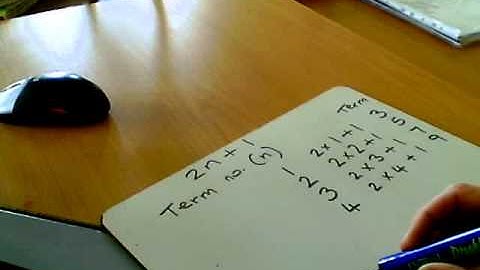 2n + 1
Term no. (n) Term
1 2×1+1 3
2 2×2+1 5
3 2×3+1 7
4 2×4+1 9